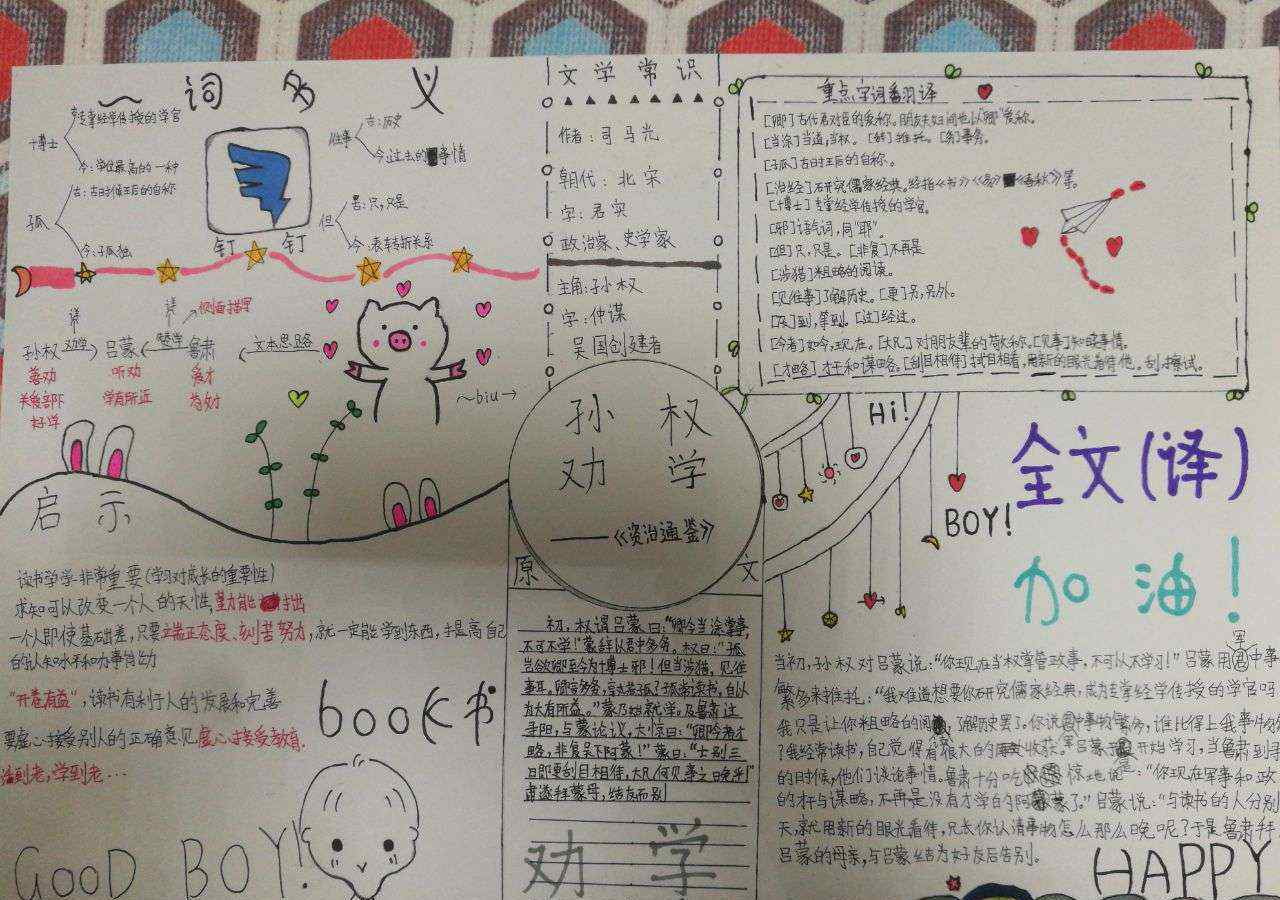 一词多义
博士
专掌经学传授的学官
今:学位最高的一种
孤
古:古时候王后的自称
今:孤独
往事
古:历史
今:过去的事情
但
古:只,只是
今:表转折关系
钉 钉
详
详
侧面描写
孙权 劝学 吕蒙 赞学 鲁肃
文本思路
善劝 听劝 爱才
关爱部下 学有所进 为友
好学
~biu→
启示
读书学学非常重要(学习对成长的重要性)
求知可以改变一个人的天性,勤能补拙
一个人即使基础差,只要端正态度、刻苦努力,就一定能学到东西,提高自己
的认知水平和办事能力
“开卷有益”,读书有利于人的发展和完善
要虚心接受别人的正确意见虚心接受教育.
活到老,学到老…
book书
GOOD BOY!
文学常识
作者:司马光
朝代:北宋
字:君实
政治家、史学家
主角:孙权
字:仲谋
吴国创建者
孙权
劝学
——《资治通鉴》
原文
初,权谓吕蒙曰:“卿今当涂掌事,
不可不学!”蒙辞以军中多务。权曰:“孤
岂欲卿治经为博士邪!但当涉猎,见往
事耳。卿言多务,孰若孤?孤常读书,自以
为大有所益。”蒙乃始就学。及鲁肃过
寻阳,与蒙论议,大惊曰:“卿今者才
略,非复吴下阿蒙!”蒙曰:“士别三
日即更刮目相待,大兄何见事之晚乎!”
肃遂拜蒙母,结友而别
劝学
重点字词翻译
[卿]古代君对臣的爱称。朋友夫妇间也以“卿”爱称。
[当涂]当道,当权。[辞]推托。[务]事务。
[孤]古时王后的自称。
[治经]研究儒家经典。经指《书》《易》《春秋》等。
[博士]专掌经学传授的学官。
[邪]语气词,同“耶”。
[但]只,只是。[非复]不再是
[涉猎]粗略的阅读。
[见往事]了解历史。[更]另,另外。
[及]到,等到。[过]经过。
[今者]如今,现在,[大兄]对朋友辈的敬称。[见事]知晓事情。
[才略]才干和谋略。[刮目相待]拭目相看,用新的眼光看待他。刮,擦拭。
Hi!
BOY!
全文(译)
加油!
军
当初,孙权对吕蒙说:“你现在当权掌管政事,不可以不学习!”吕蒙用中事
繁多来推托:“我难道想要你研究儒家经典,成为专掌经学传授的学官吗
我只是让你粗略的阅,了解历史罢了。你说事务,谁比得上我事物
了我经常读书,自己觉得有很大的收获。吕蒙开始学习,当鲁肃到寻
的时候,他们谈论事情。鲁肃十分吃惊地说:“你现在军事和政
的才与谋略,不再是没有才学的阿蒙了。”吕蒙说:“与读书的人分别
天,就用新的眼光看待,兄长你认清事物怎么那么晚呢?于是鲁肃拜
吕蒙的母亲,与吕蒙结为好友后告别。
HAPPY